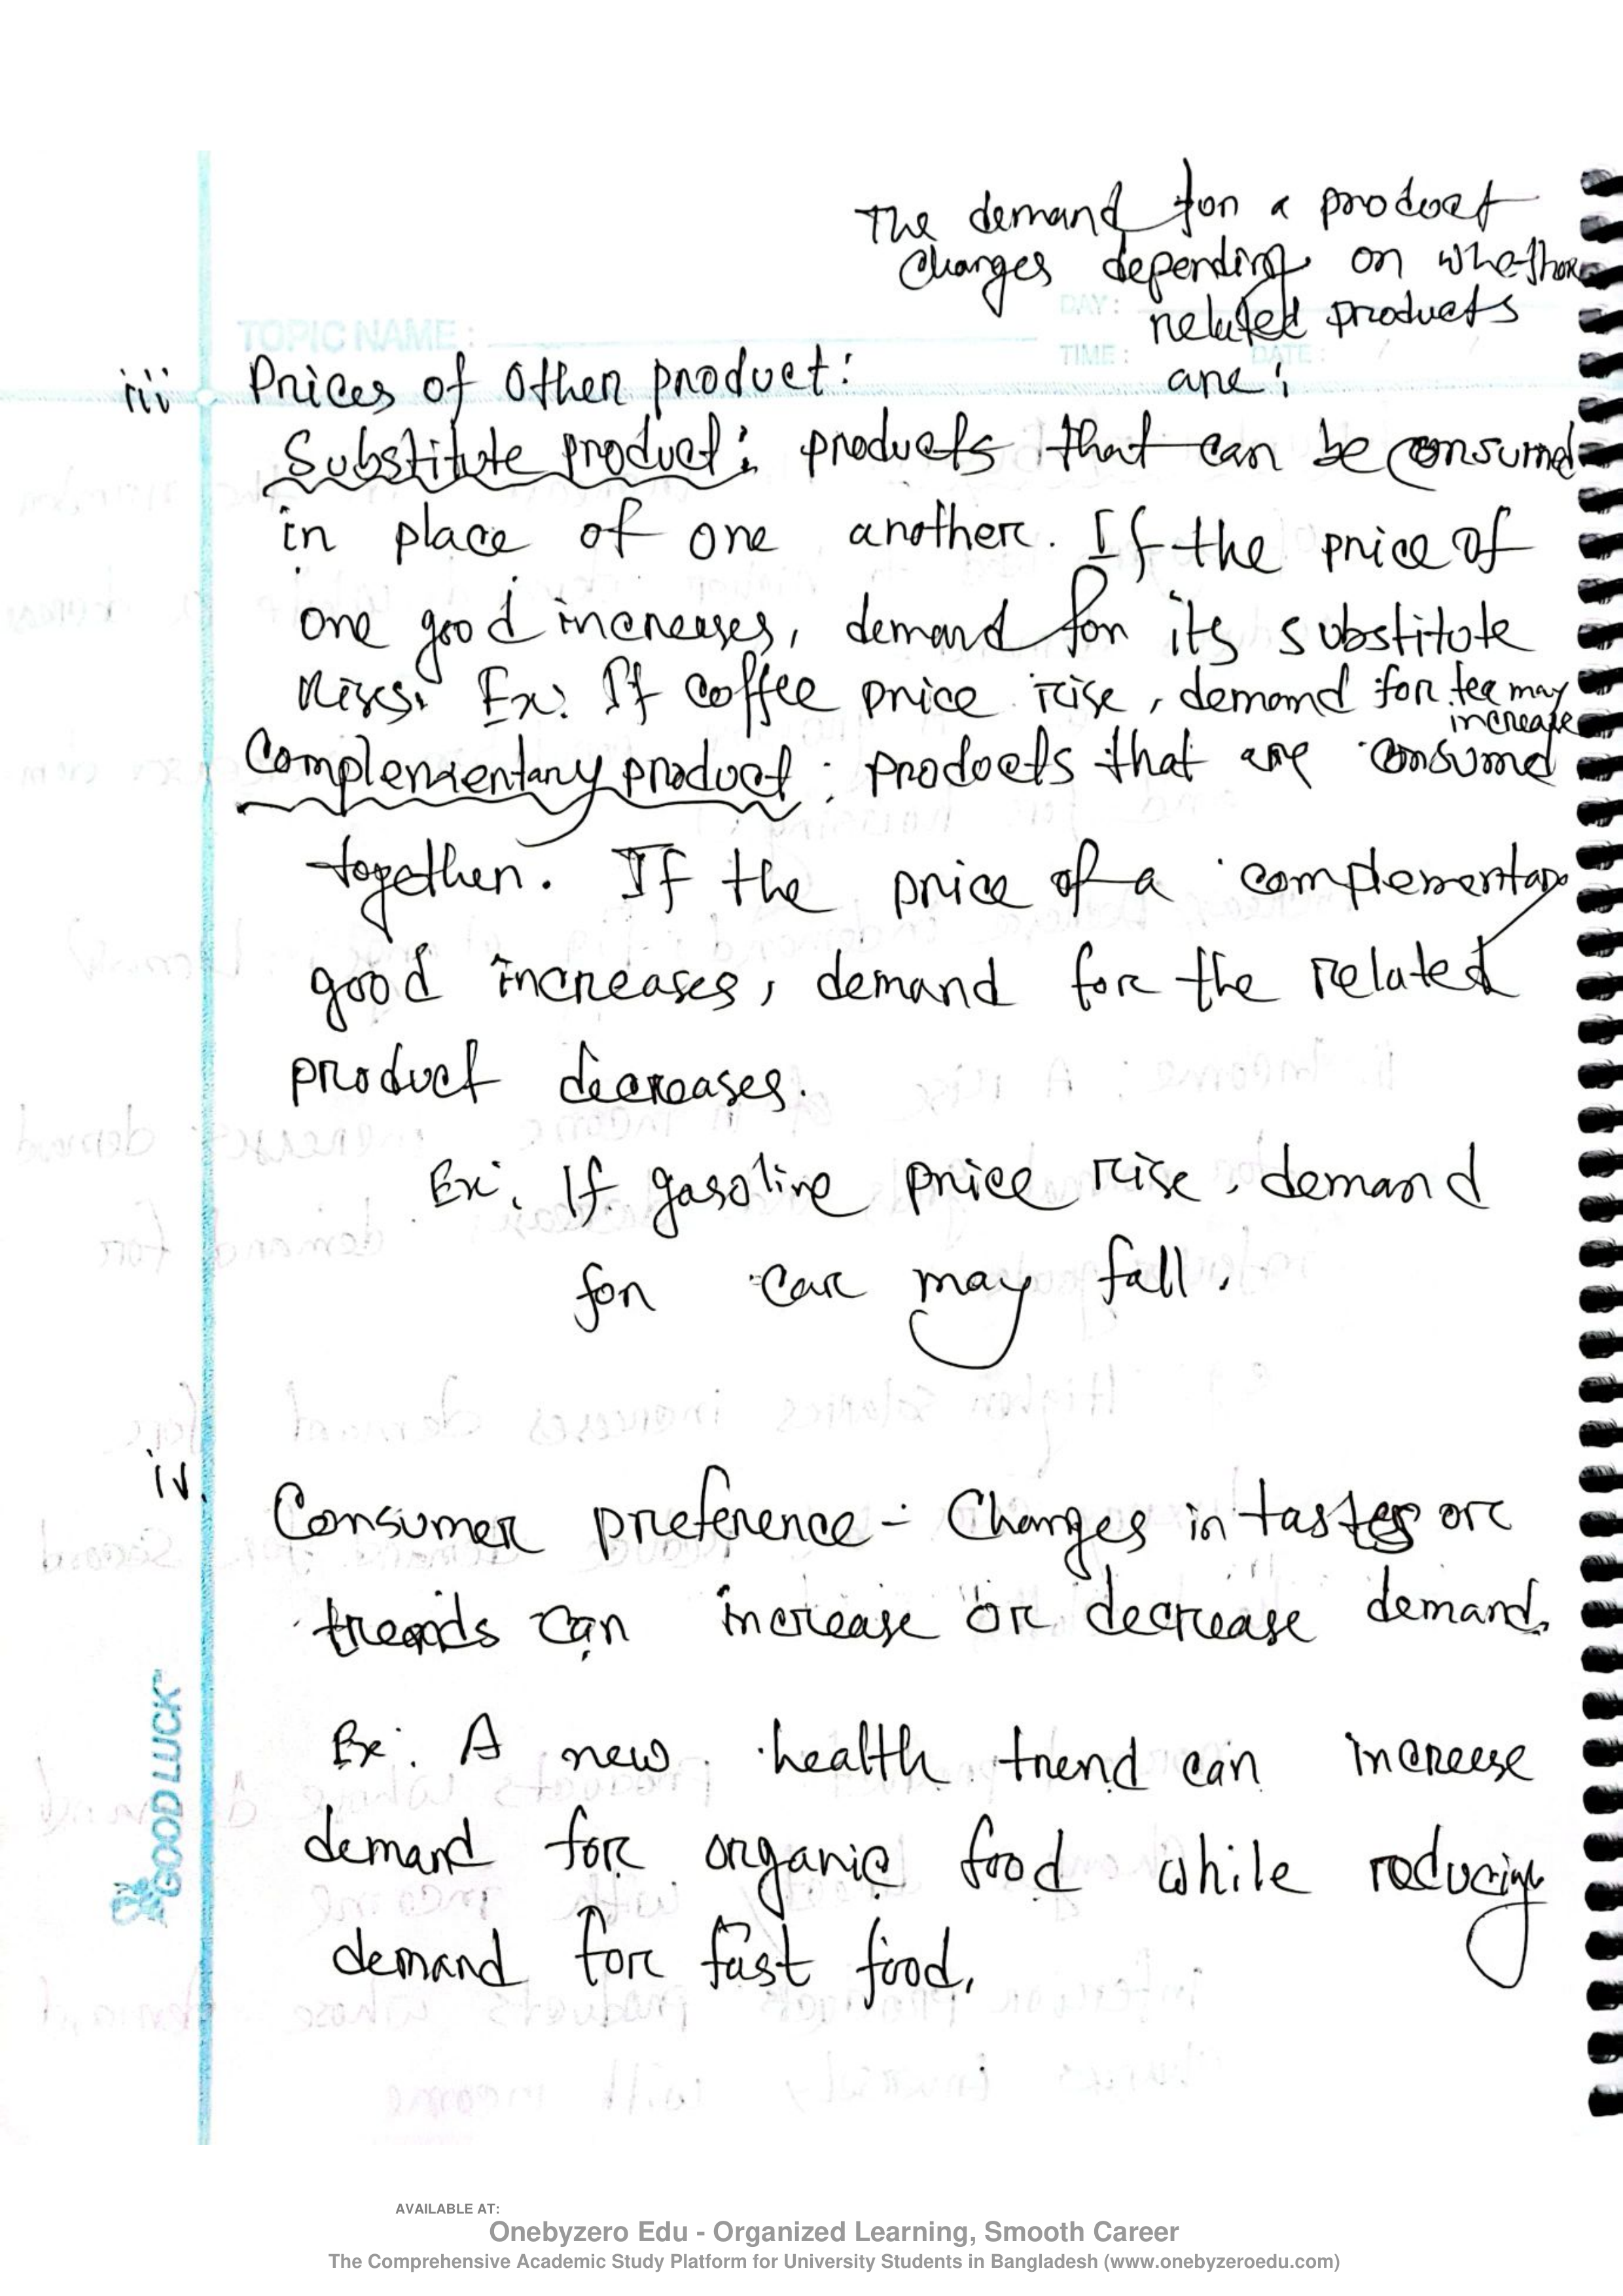 The demand for a product
changes depending on whether
related products
are :
TOPIC NAME :
DAY :
TIME :
DATE :
iii Prices of other product :
Substitute product : products that can be consumed
in place of one another. If the price of
one good increases, demand for its substitute
rises. Ex: If coffee price rise, demand for tea may
increase
Complementary product : products that are consumed
together. If the price of a complementary
good increases, demand for the related
product decreases.
Ex: If gasoline price rise, demand
for car may fall.
iv. Consumer preference - Changes in tastes or
trends can increase or decrease demand.
Ex: A new health trend can increase
demand for organic food while reducing
demand for fast food.
GOOD LUCK
AVAILABLE AT:
Onebyzero Edu - Organized Learning, Smooth Career
The Comprehensive Academic Study Platform for University Students in Bangladesh (www.onebyzeroedu.com)